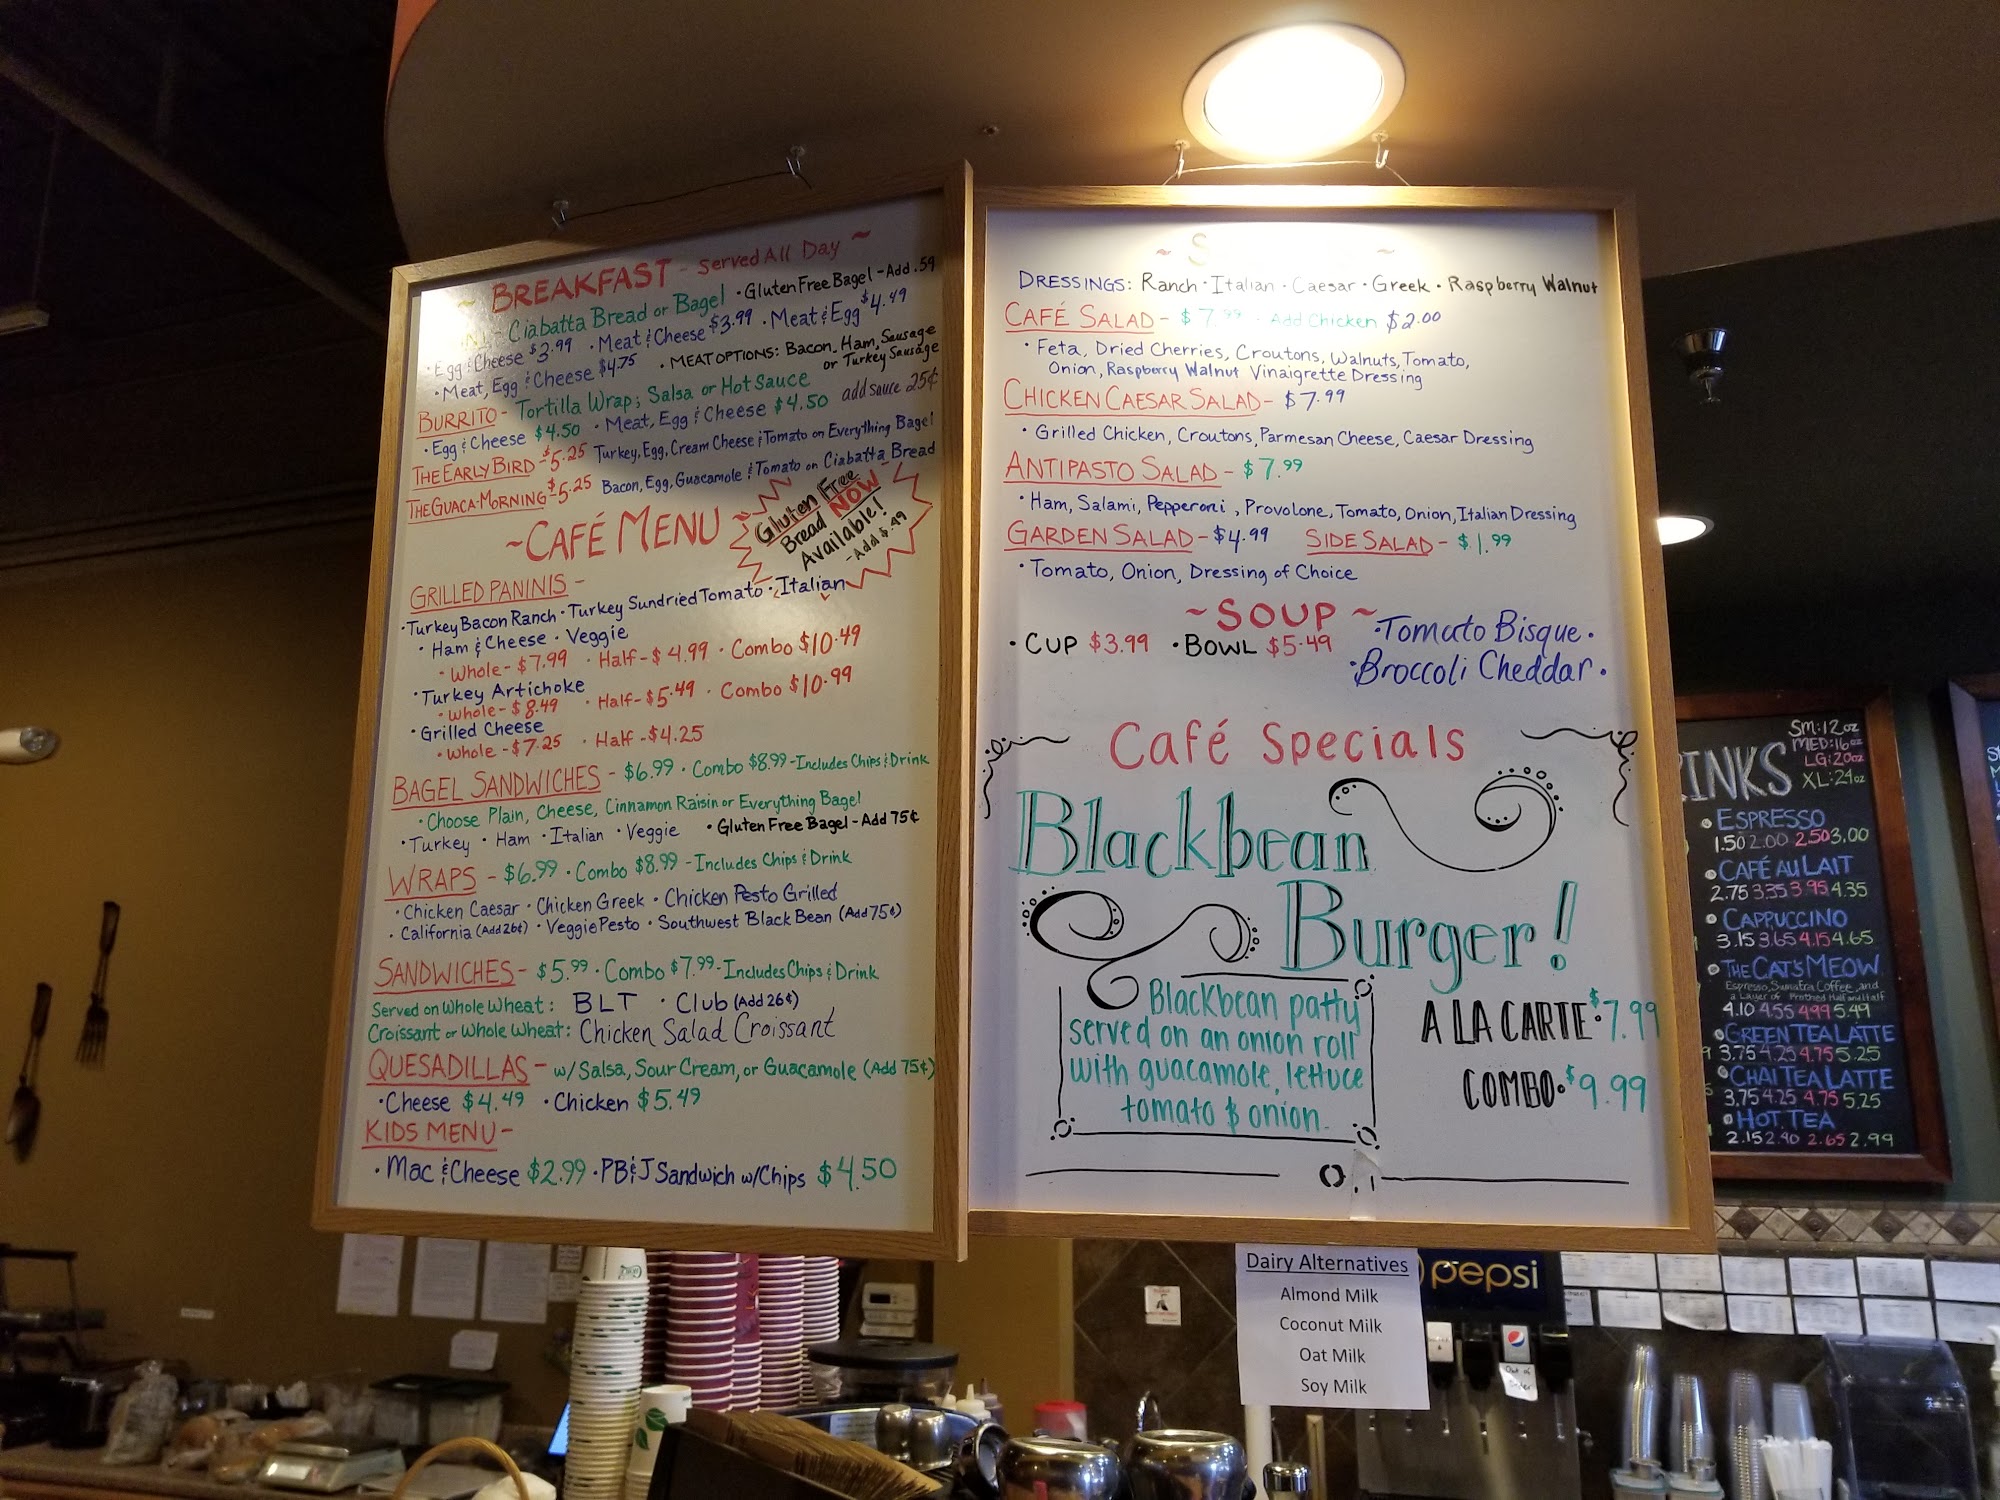 ~ BREAKFAST - Served All Day ~
Ciabatta Bread or Bagel · Gluten Free Bagel - Add .59
· Egg & Cheese $3.99 · Meat & Cheese $3.99 · Meat & Egg $4.49
· Meat, Egg & Cheese $4.75 · MEAT OPTIONS: Bacon, Ham, Sausage
or Turkey Sausage
BURRITO - Tortilla Wrap; Salsa or Hot Sauce
· Egg & Cheese $4.50 · Meat, Egg & Cheese $4.50 add sauce 25¢
THE EARLY BIRD - $5.25 Turkey, Egg, Cream Cheese & Tomato on Everything Bagel
THE GUACA-MORNING - $5.25 Bacon, Egg, Guacamole & Tomato on Ciabatta Bread
~CAFÉ MENU~
Gluten Free
Bread NOW
Available!
- Add $.49
GRILLED PANINIS -
· Turkey Bacon Ranch · Turkey Sundried Tomato · Italian
· Ham & Cheese · Veggie
· Whole - $7.99 · Half - $4.99 · Combo $10.49
· Turkey Artichoke
· Whole - $8.49 · Half - $5.49 · Combo $10.99
· Grilled Cheese
· Whole - $7.25 · Half - $4.25
BAGEL SANDWICHES - $6.99 · Combo $8.99 - Includes Chips & Drink
· Choose Plain, Cheese, Cinnamon Raisin or Everything Bagel
· Turkey · Ham · Italian · Veggie · Gluten Free Bagel - Add 75¢
WRAPS - $6.99 · Combo $8.99 - Includes Chips & Drink
· Chicken Caesar · Chicken Greek · Chicken Pesto Grilled
· California (Add 26¢) · Veggie Pesto · Southwest Black Bean (Add 75¢)
SANDWICHES - $5.99 · Combo $7.99 - Includes Chips & Drink
Served on Whole Wheat: BLT · Club (Add 26¢)
Croissant or Whole Wheat: Chicken Salad Croissant
QUESADILLAS - w/ Salsa, Sour Cream, or Guacamole (Add 75¢)
· Cheese $4.49 · Chicken $5.49
KIDS MENU -
· Mac & Cheese $2.99 · PB & J Sandwich w/ Chips $4.50
~ S ~
DRESSINGS: Ranch · Italian · Caesar · Greek · Raspberry Walnut
CAFÉ SALAD - $7.99 · Add Chicken $2.00
· Feta, Dried Cherries, Croutons, Walnuts, Tomato,
Onion, Raspberry Walnut Vinaigrette Dressing
CHICKEN CAESAR SALAD - $7.99
· Grilled Chicken, Croutons, Parmesan Cheese, Caesar Dressing
ANTIPASTO SALAD - $7.99
· Ham, Salami, Pepperoni, Provolone, Tomato, Onion, Italian Dressing
GARDEN SALAD - $4.99 SIDE SALAD - $1.99
· Tomato, Onion, Dressing of Choice
~ SOUP ~
· CUP $3.99 · BOWL $5.49
· Tomato Bisque ·
· Broccoli Cheddar ·
Café Specials
Blackbean
Burger!
Blackbean patty
served on an onion roll
with guacamole, lettuce
tomato & onion.
A LA CARTE · $7.99
COMBO · $9.99
SM: 12oz
MED: 16oz
LG: 20oz
XL: 24oz
INKS
ESPRESSO
1.50 2.00 2.50 3.00
CAFÉ AU LAIT
2.75 3.35 3.95 4.35
CAPPUCCINO
3.15 3.65 4.15 4.65
THE CAT'S MEOW
Espresso, Sumatra Coffee, and
a Layer of Frothed Half and Half
4.10 4.55 4.99 5.49
GREEN TEA LATTE
3.75 4.25 4.75 5.25
CHAI TEA LATTE
3.75 4.25 4.75 5.25
HOT TEA
2.15 2.40 2.65 2.99
Dairy Alternatives
Almond Milk
Coconut Milk
Oat Milk
Soy Milk
pepsi
Out of
Order